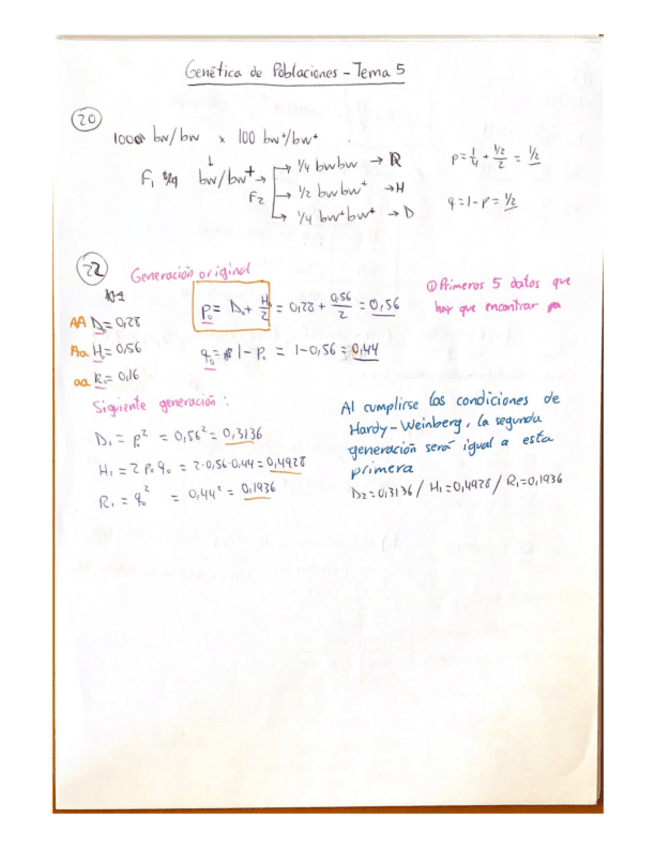 Genética de Poblaciones - Tema 5
20
100 bw/bw x 100 bw⁺/bw⁺
↓
F₁ bw/bw⁺ →
F₂
→ 1/4 bwbw → R
→ 1/2 bwbw⁺ → H
→ 1/4 bw⁺bw⁺ → D
p = 1/4 + (1/2)/2 = 1/2
q = 1 - p = 1/2
22 Generación original
AA D₀ = 0,28
Aa H₀ = 0,56
aa R₀ = 0,16
p₀ = D₀ + H₀/2 = 0,28 + 0,56/2 = 0,56
q₀ = 1 - P₀ = 1 - 0,56 = 0,44
① Primeros 5 datos que
hay que encontrar
Siguiente generación:
D₁ = p₀² = 0,56² = 0,3136
H₁ = 2 p₀ q₀ = 2·0,56·0,44 = 0,4928
R₁ = q₀² = 0,44² = 0,1936
Al cumplirse las condiciones de
Hardy-Weinberg, la segunda
generación será igual a esta
primera
D₂ = 0,3136 / H₁ = 0,4928 / R₁ = 0,1936